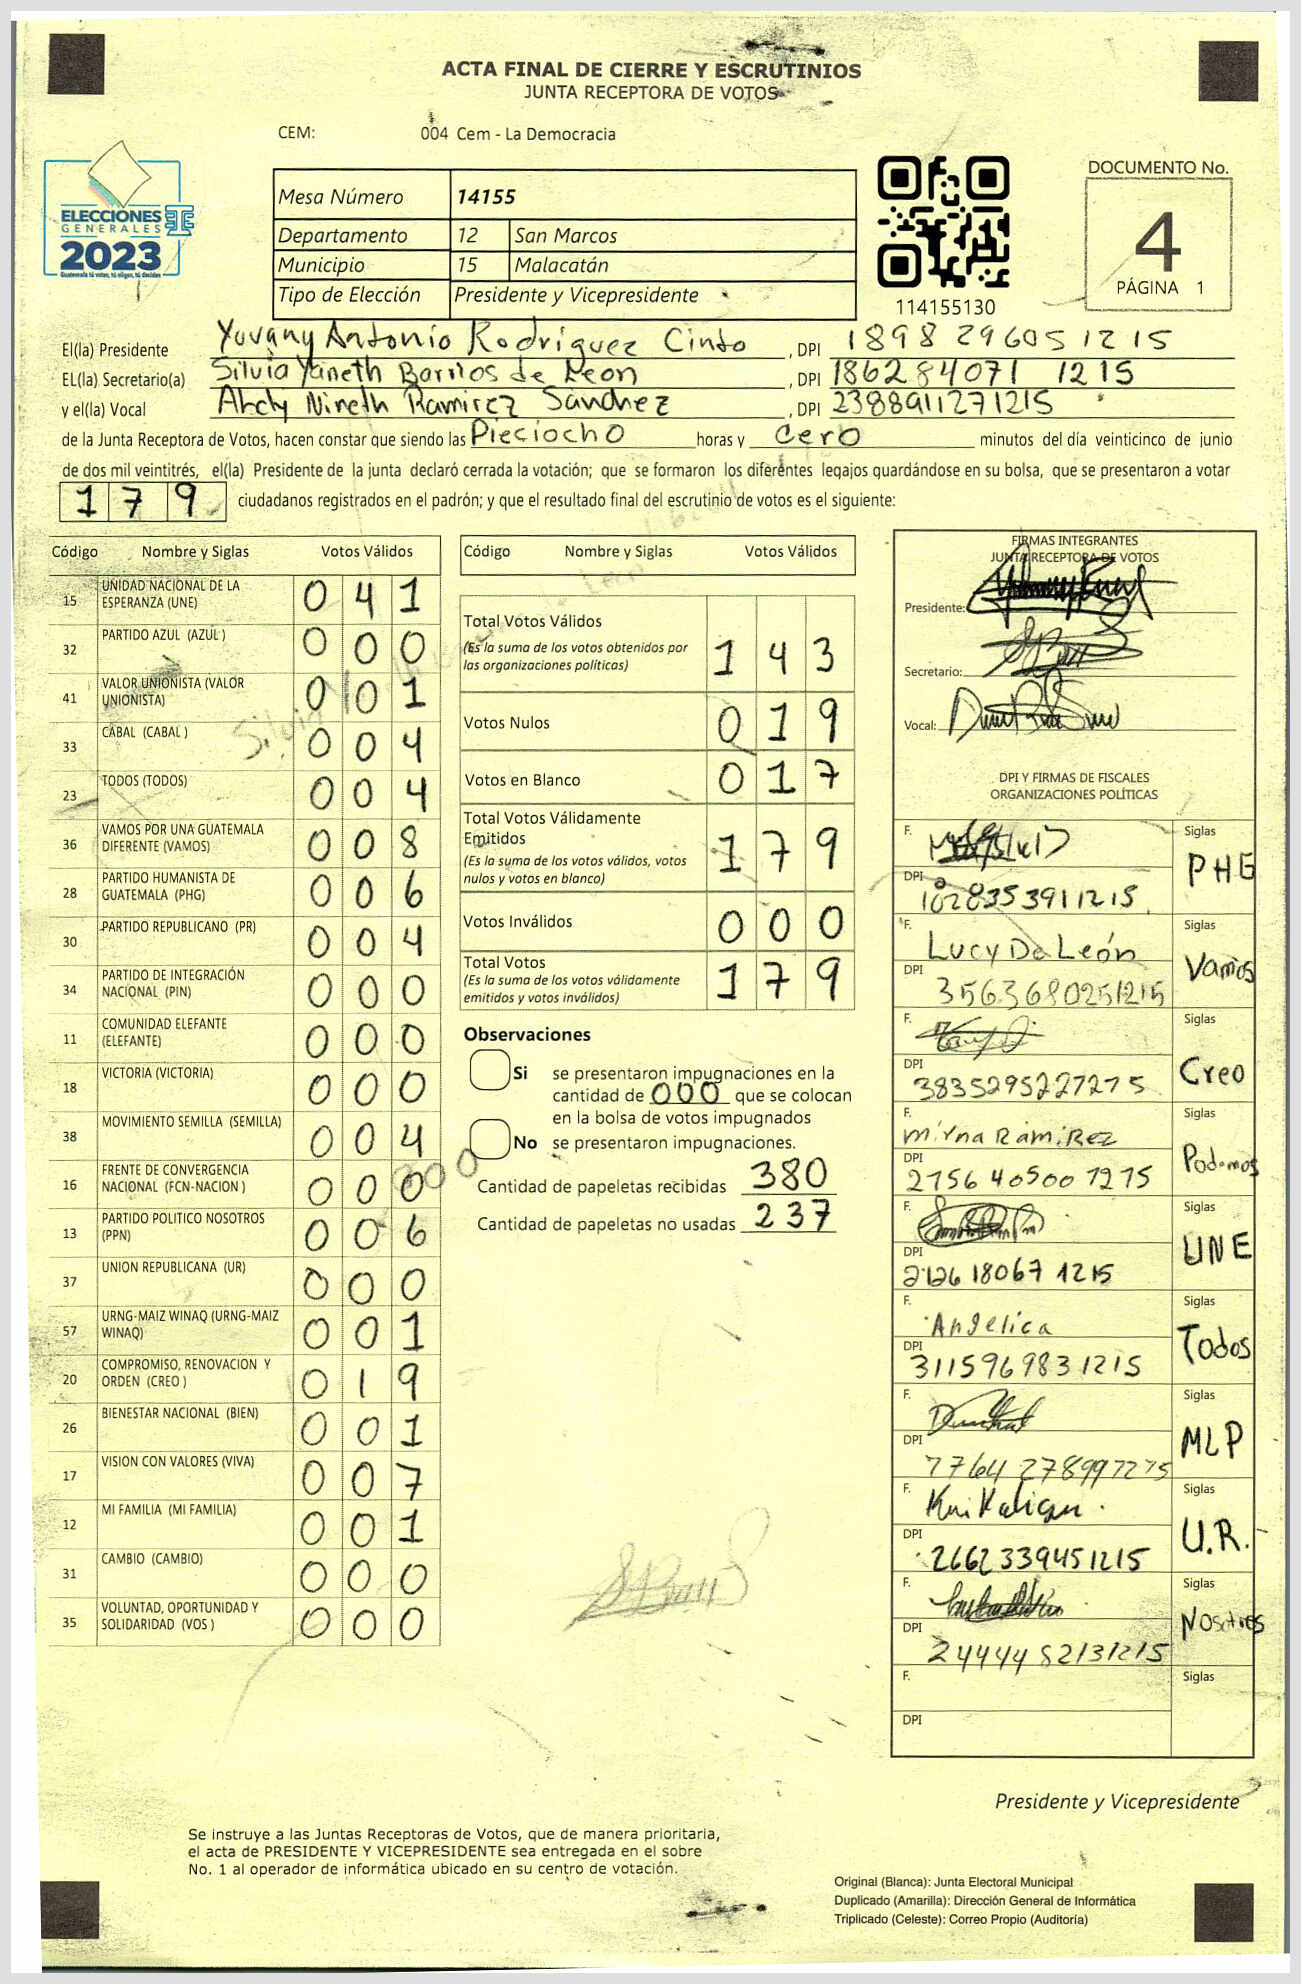 ACTA FINAL DE CIERRE Y ESCRUTINIOS
JUNTA RECEPTORA DE VOTOS
CEM: 004 Cem - La Democracia
ELECCIONES
GENERALES
2023
Guatemala tú votas, tú eliges, tú decides
Mesa Número 14155
Departamento 12 San Marcos
Municipio 15 Malacatán
Tipo de Elección Presidente y Vicepresidente
114155130
DOCUMENTO No.
4
PÁGINA 1
El(la) Presidente Yovany Antonio Rodríguez Cinto , DPI 1898 29605 1215
EL(la) Secretario(a) Silvia Yaneth Barrios de Leon , DPI 186284071 1215
y el(la) Vocal Ramirez Sánchez , DPI 2388911271215
de la Junta Receptora de Votos, hacen constar que siendo las Dieciocho horas y cero minutos del día veinticinco de junio
de dos mil veintitrés, el(la) Presidente de la junta declaró cerrada la votación; que se formaron los diferentes legajos guardándose en su bolsa, que se presentaron a votar
179 ciudadanos registrados en el padrón; y que el resultado final del escrutinio de votos es el siguiente:
Código Nombre y Siglas Votos Válidos
15 UNIDAD NACIONAL DE LA ESPERANZA (UNE) 041
32 PARTIDO AZUL (AZUL ) 000
41 VALOR UNIONISTA (VALOR UNIONISTA) 001
33 CABAL (CABAL ) 004
23 TODOS (TODOS) 004
36 VAMOS POR UNA GUATEMALA DIFERENTE (VAMOS) 008
28 PARTIDO HUMANISTA DE GUATEMALA (PHG) 006
30 PARTIDO REPUBLICANO (PR) 004
34 PARTIDO DE INTEGRACIÓN NACIONAL (PIN) 000
11 COMUNIDAD ELEFANTE (ELEFANTE) 000
18 VICTORIA (VICTORIA) 000
38 MOVIMIENTO SEMILLA (SEMILLA) 004
16 FRENTE DE CONVERGENCIA NACIONAL (FCN-NACION ) 000
13 PARTIDO POLITICO NOSOTROS (PPN) 006
37 UNION REPUBLICANA (UR) 000
57 URNG-MAIZ WINAQ (URNG-MAIZ WINAQ) 001
20 COMPROMISO, RENOVACION Y ORDEN (CREO ) 019
26 BIENESTAR NACIONAL (BIEN) 001
17 VISION CON VALORES (VIVA) 007
12 MI FAMILIA (MI FAMILIA) 001
31 CAMBIO (CAMBIO) 000
35 VOLUNTAD, OPORTUNIDAD Y SOLIDARIDAD (VOS ) 000
Código Nombre y Siglas Votos Válidos
Total Votos Válidos 143
(Es la suma de los votos obtenidos por
las organizaciones políticas)
Votos Nulos 019
Votos en Blanco 017
Total Votos Válidamente
Emitidos 179
(Es la suma de los votos válidos, votos
nulos y votos en blanco)
Votos Inválidos 000
Total Votos 179
(Es la suma de los votos válidamente
emitidos y votos inválidos)
Observaciones
Si se presentaron impugnaciones en la
cantidad de 000 que se colocan
en la bolsa de votos impugnados
No se presentaron impugnaciones.
000
Cantidad de papeletas recibidas 380
Cantidad de papeletas no usadas 237
FIRMAS INTEGRANTES
JUNTA RECEPTORA DE VOTOS
Presidente:
Secretario:
Vocal:
DPI Y FIRMAS DE FISCALES
ORGANIZACIONES POLÍTICAS
F. Siglas PHG
DPI
F. Lucy De León Siglas Vamos
DPI 3563680251215
F. Siglas Creo
DPI
F. Mirna Ramirez Siglas Podemos
DPI 2756 40500 1215
F. Siglas UNE
DPI 2126 18067 1215
F. Angelica Siglas Todos
DPI 3115969831215
F. Siglas MLP
DPI
F. Siglas U.R.
DPI 2662339451215
F. Siglas Nosotros
DPI 2444482131215
F. Siglas
DPI
Presidente y Vicepresidente
Se instruye a las Juntas Receptoras de Votos, que de manera prioritaria,
el acta de PRESIDENTE Y VICEPRESIDENTE sea entregada en el sobre
No. 1 al operador de informática ubicado en su centro de votación.
Original (Blanca): Junta Electoral Municipal
Duplicado (Amarilla): Dirección General de Informática
Triplicado (Celeste): Correo Propio (Auditoría)